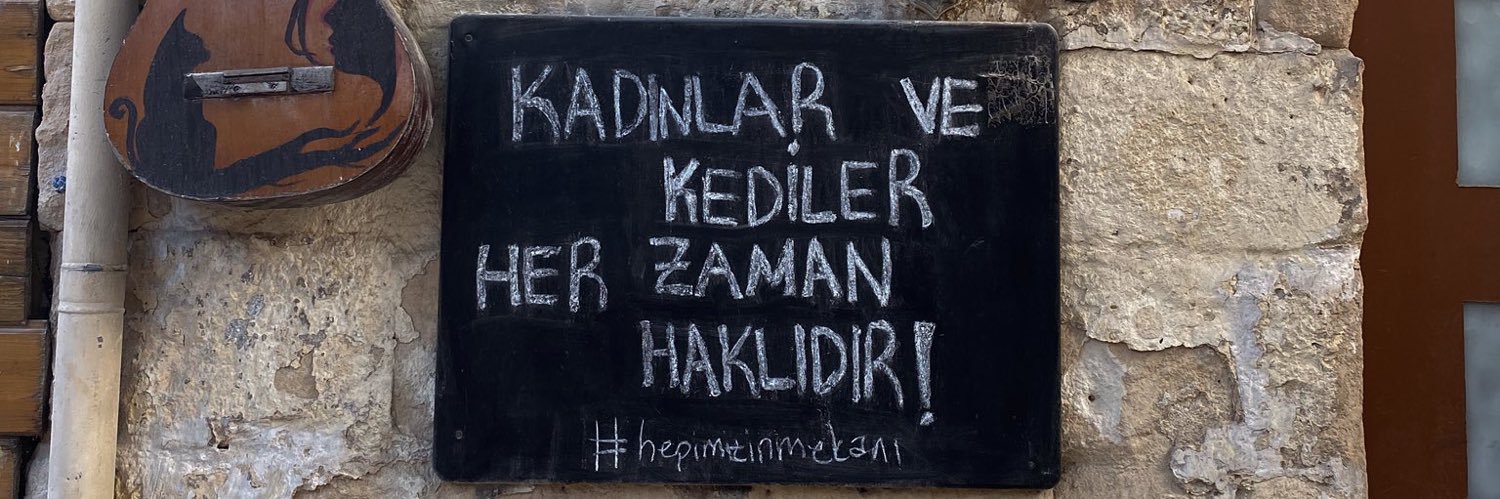 KADINLAR VE
KEDİLER
HER ZAMAN
HAKLIDIR!
#hepimizinmekanı